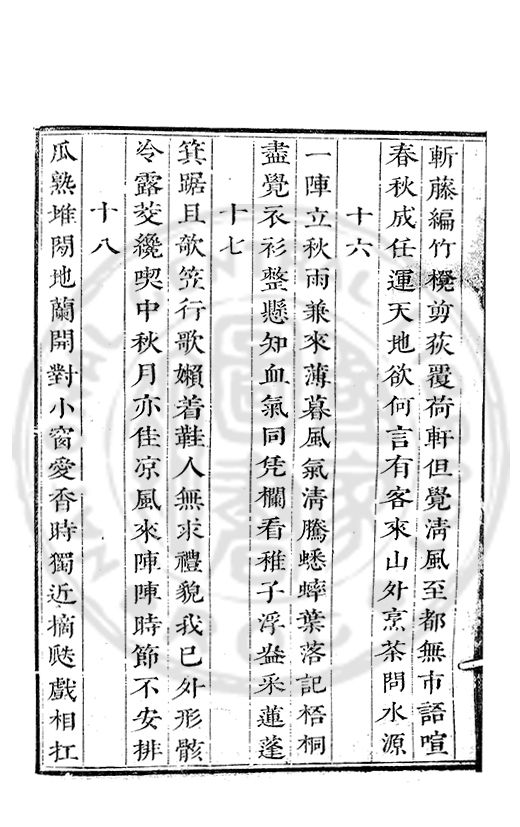 斬藤編竹櫈剪荻覆荷軒但覺清風至都無市語喧
春秋成任運天地欲何言有客來山外烹茶問水源
十六
一陣立秋雨兼來薄暮風氣清騰蟋蟀葉落記梧桐
盡覺衣衫整懸知血氣同凭欄看稚子浮盎采蓮蓬
十七
箕踞且欹笠行歌嬾着鞋人無求禮貌我已外形骸
冷露茭纔喫中秋月亦佳凉風來陣陣時節不安排
十八
瓜熟堆閒地蘭開對小窗愛香時獨近摘瓞戲相扛